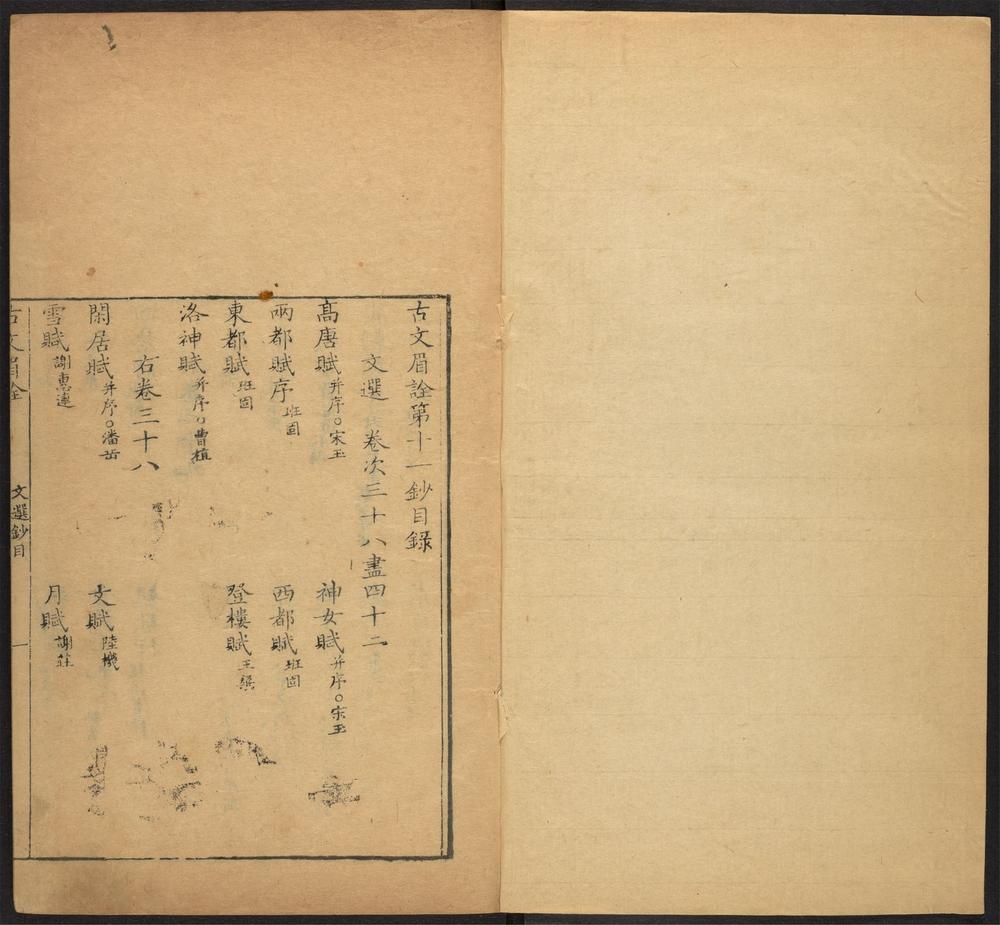 古文眉詮第十一鈔目錄
文選 卷次三十八盡四十二
高唐賦 并序○宋玉 神女賦 并序○宋玉
兩都賦序 班固 西都賦 班固
東都賦 班固 登樓賦 王粲
洛神賦 并序○曹植
右卷三十八
閑居賦 并序○潘岳 文賦 陸機
雪賦 謝惠連 月賦 謝莊
古文眉詮 文選鈔目 一